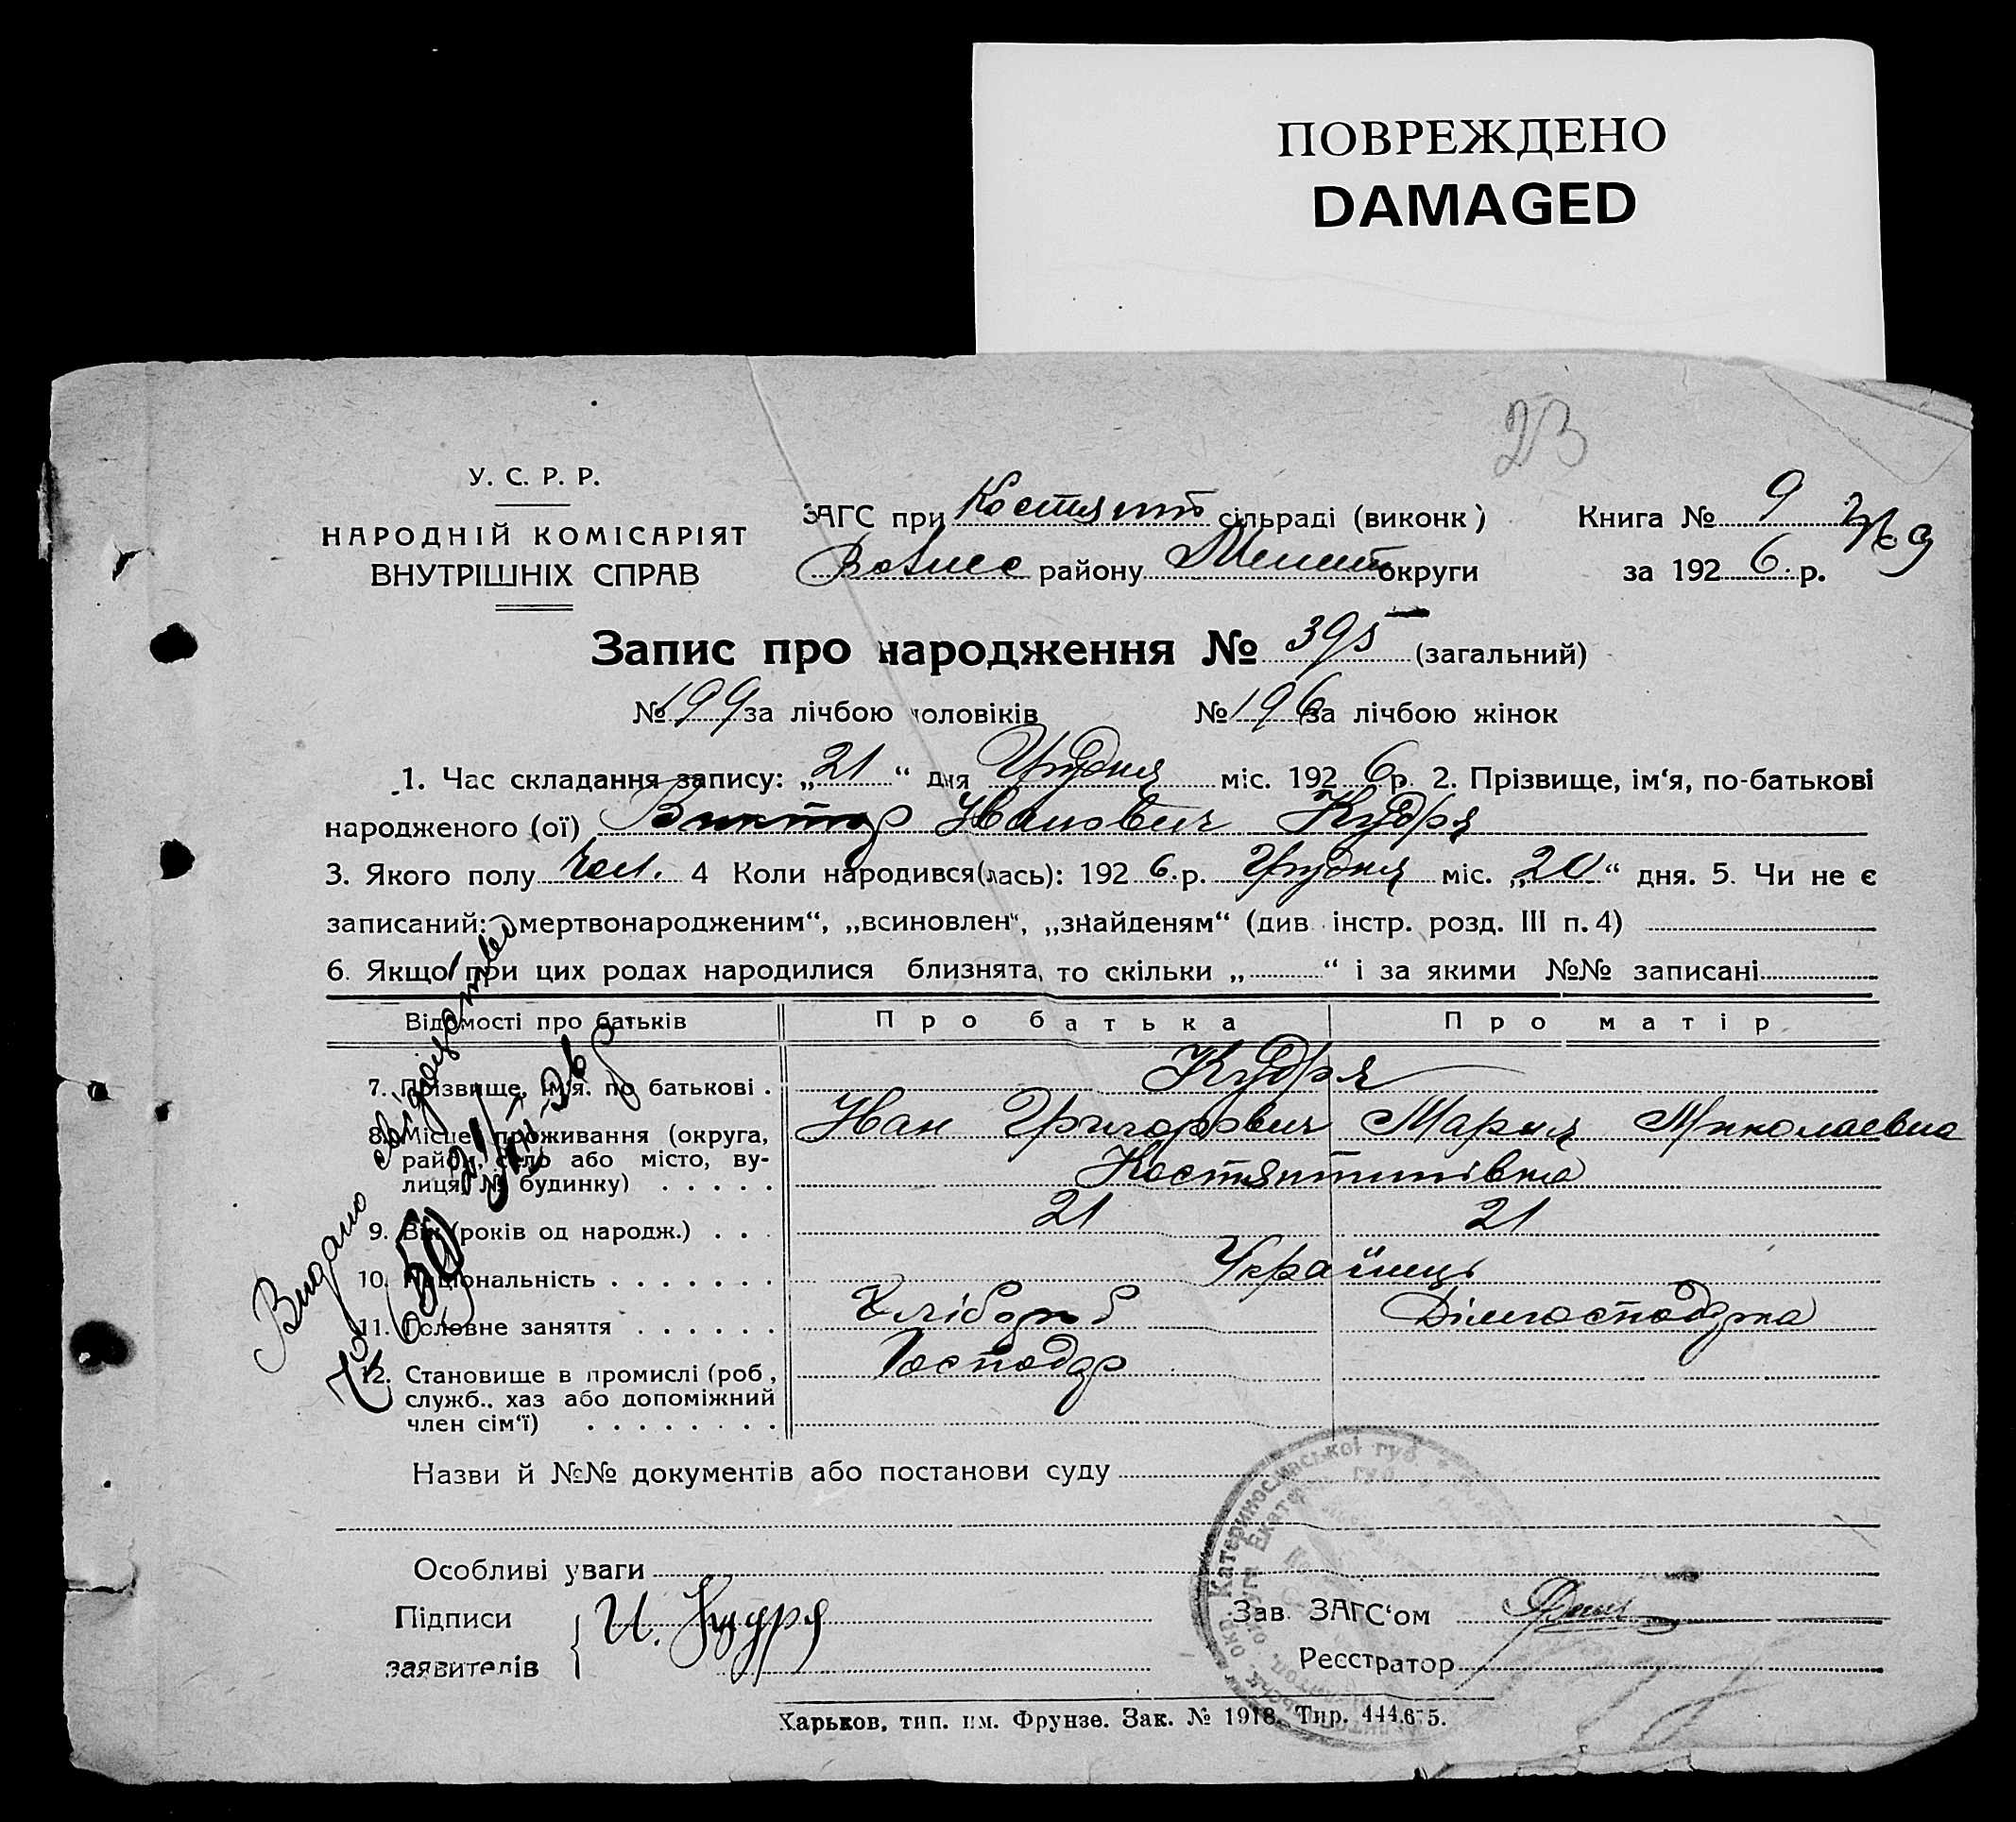 ПОВРЕЖДЕНО
DAMAGED
23
У. С. Р. Р.
НАРОДНІЙ КОМІСАРІЯТ
ВНУТРІШНІХ СПРАВ
ЗАГС при Костянт сільраді (виконк)
Вознес району Мелит округи
Книга № 9
за 192 6 р.
Запис про народження № 395 (загальний)
№ 199 за лічбою чоловіків № 196 за лічбою жінок
1. Час складання запису: „21“ дня Грудня міс. 192 6 р. 2. Прізвище, ім‘я, по-батькові
народженого (ої) Виктор Иванович Кудря
3. Якого полу чол. 4 Коли народився(лась): 192 6 р. Грудня міс. „20“ дня. 5. Чи не є
записаний: „мертвонародженим“, „всиновлен“, „знайденям“ (див. інстр. розд. III п. 4)
6. Якщо при цих родах народилися близнята, то скільки „ “ і за якими №№ записані
Відомості про батьків Про батька Про матір
7. Прізвище, ім‘я. по батькові . Кудря
8. Місце проживання (округа, Иван Григорович Мария Миколаевна
район, село або місто, ву-
лиця, № будинку) . . . . . Костянтинівка
9. Вік (років од народж.) . . . 21 21
10. Національність . . . . . . . Українець
11. Головне заняття . . . . . . Хлібороб Дом господарка
12. Становище в промислі (роб, Господар
служб., хаз або допоміжний
член сім‘ї) . . . . . . . .
Видано свідоцтво
Назви й №№ документів або постанови суду
Особливі уваги
Підписи
заявителів { И. Кудря
Зав. ЗАГС‘ом
Реєстратор
окр. Катеринославської губ.
Харьков, тип. им. Фрунзе. Зак. № 1918. Тир. 444.675.